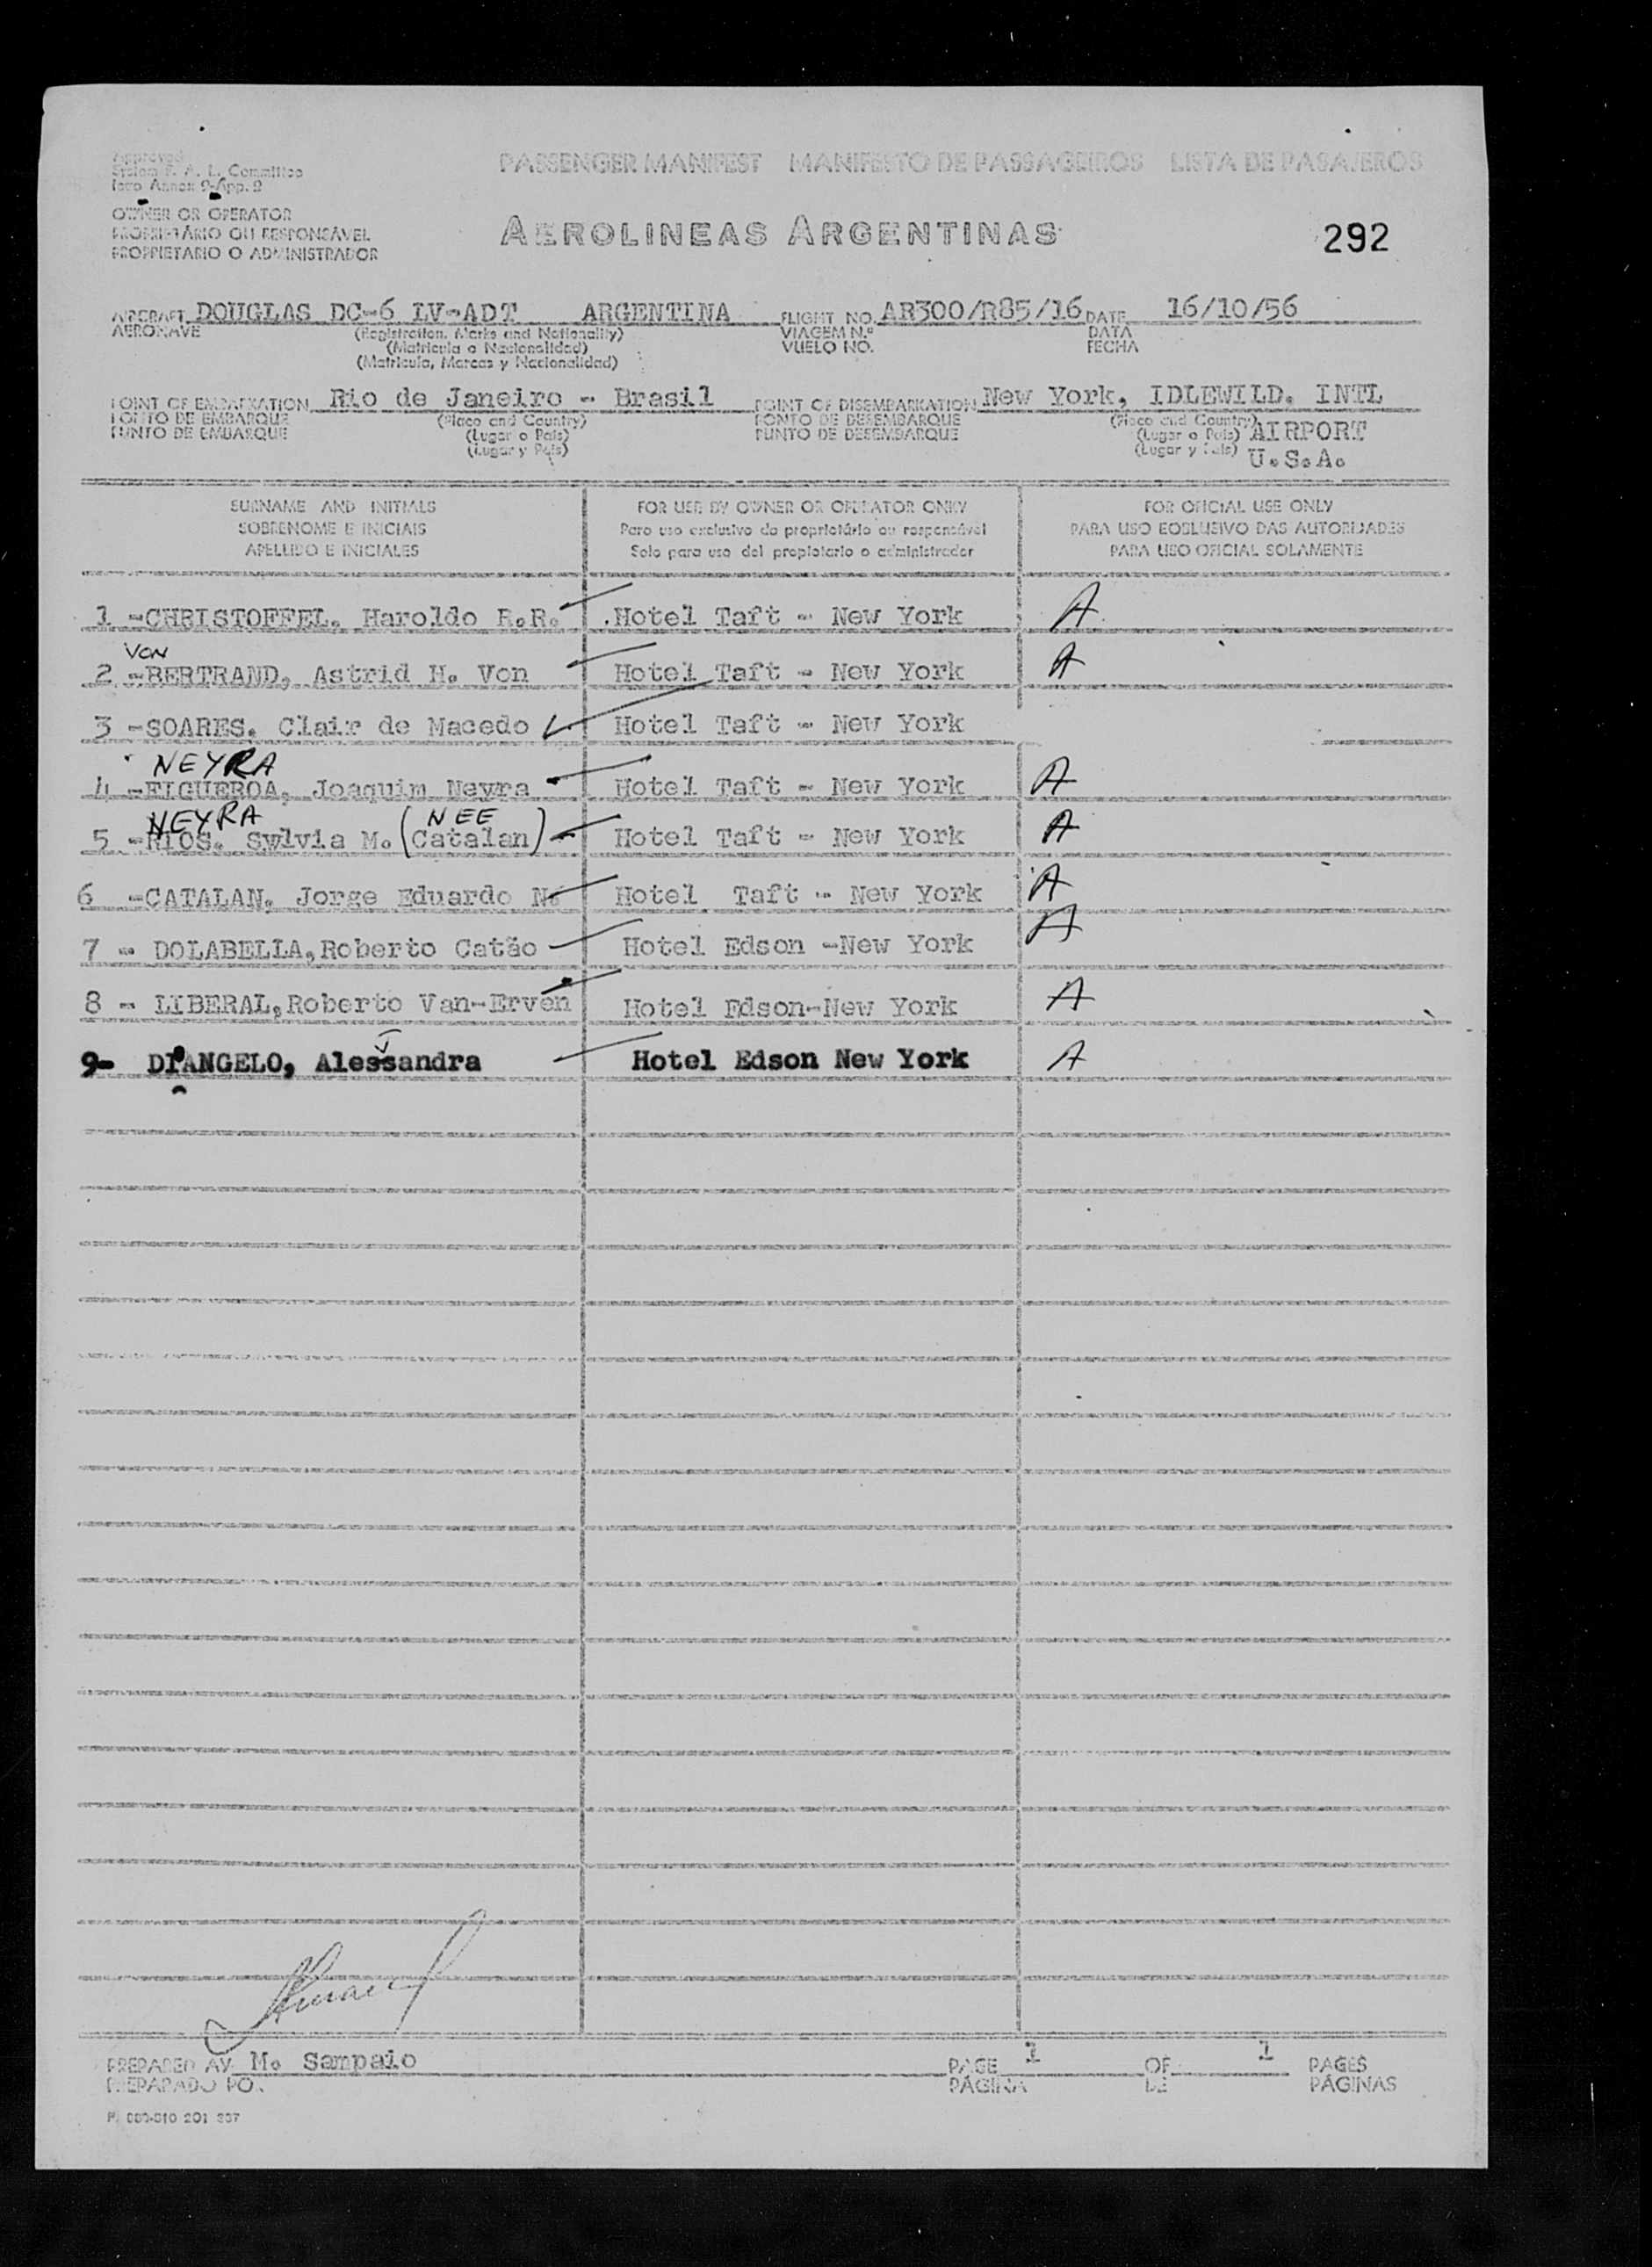 Approved
System F. A. L. Committee
Icao Annex 9-App. 2
PASSENGER MANIFEST MANIFESTO DE PASSAGEIROS LISTA DE PASAJEROS
OWNER OR OPERATOR
PROPRIETÁRIO OU RESPONSÁVEL
PROPIETARIO O ADMINISTRADOR
AEROLINEAS ARGENTINAS
292
AIRCRAFT DOUGLAS DC-6 LV-ADT ARGENTINA FLIGHT NO. AR300/R85/16 DATE 16/10/56
AERONAVE (Registration, Marks and Nationality) VIAGEM N.º DATA
(Matricula o Nacionalidad) VUELO NO. FECHA
(Matricula, Marcas y Nacionalidad)
POINT OF EMBARKATION Rio de Janeiro - Brasil POINT OF DISEMBARKATION New York, IDLEWILD. INTL
PONTO DE EMBARQUE (Place and Country) PONTO DE DESEMBARQUE (Place and Country)
PUNTO DE EMBARQUE (Lugar o Pais) PUNTO DE DESEMBARQUE (Lugar o Pais) AIRPORT
(Lugar y Pais) (Lugar y Pais) U.S.A.
SURNAME AND INITIALS FOR USE BY OWNER OR OPERATOR ONLY FOR OFICIAL USE ONLY
SOBRENOME E INICIAIS Para uso exclusivo do proprietário ou responsável PARA USO EOBLUSIVO DAS AUTORIDADES
APELLIDO E INICIALES Solo para uso del propietario o administrador PARA USO OFICIAL SOLAMENTE
1 -CHRISTOFFEL. Haroldo R.R. .Hotel Taft - New York A
VON
2 -BERTRAND, Astrid H. Von Hotel Taft - New York A
3 -SOARES. Clair de Macedo Hotel Taft - New York
NEYRA
4 -FIGUEROA, Joaquim Neyra Hotel Taft - New York A
NEYRA NEE
5 -RIOS. Sylvia M. (Catalan) Hotel Taft - New York A
6 -CATALAN. Jorge Eduardo N. Hotel Taft - New York A
7 - DOLABELLA,Roberto Catão Hotel Edson -New York A
8 - LIBERAL,Roberto Van-Erven Hotel Edson-New York A
9- D'ANGELO, Alessandra Hotel Edson New York A
PREPARED AY M. Sampaio PAGE 1 OF 1 PAGES
PREPARADO PO. PÁGINA DE PÁGINAS